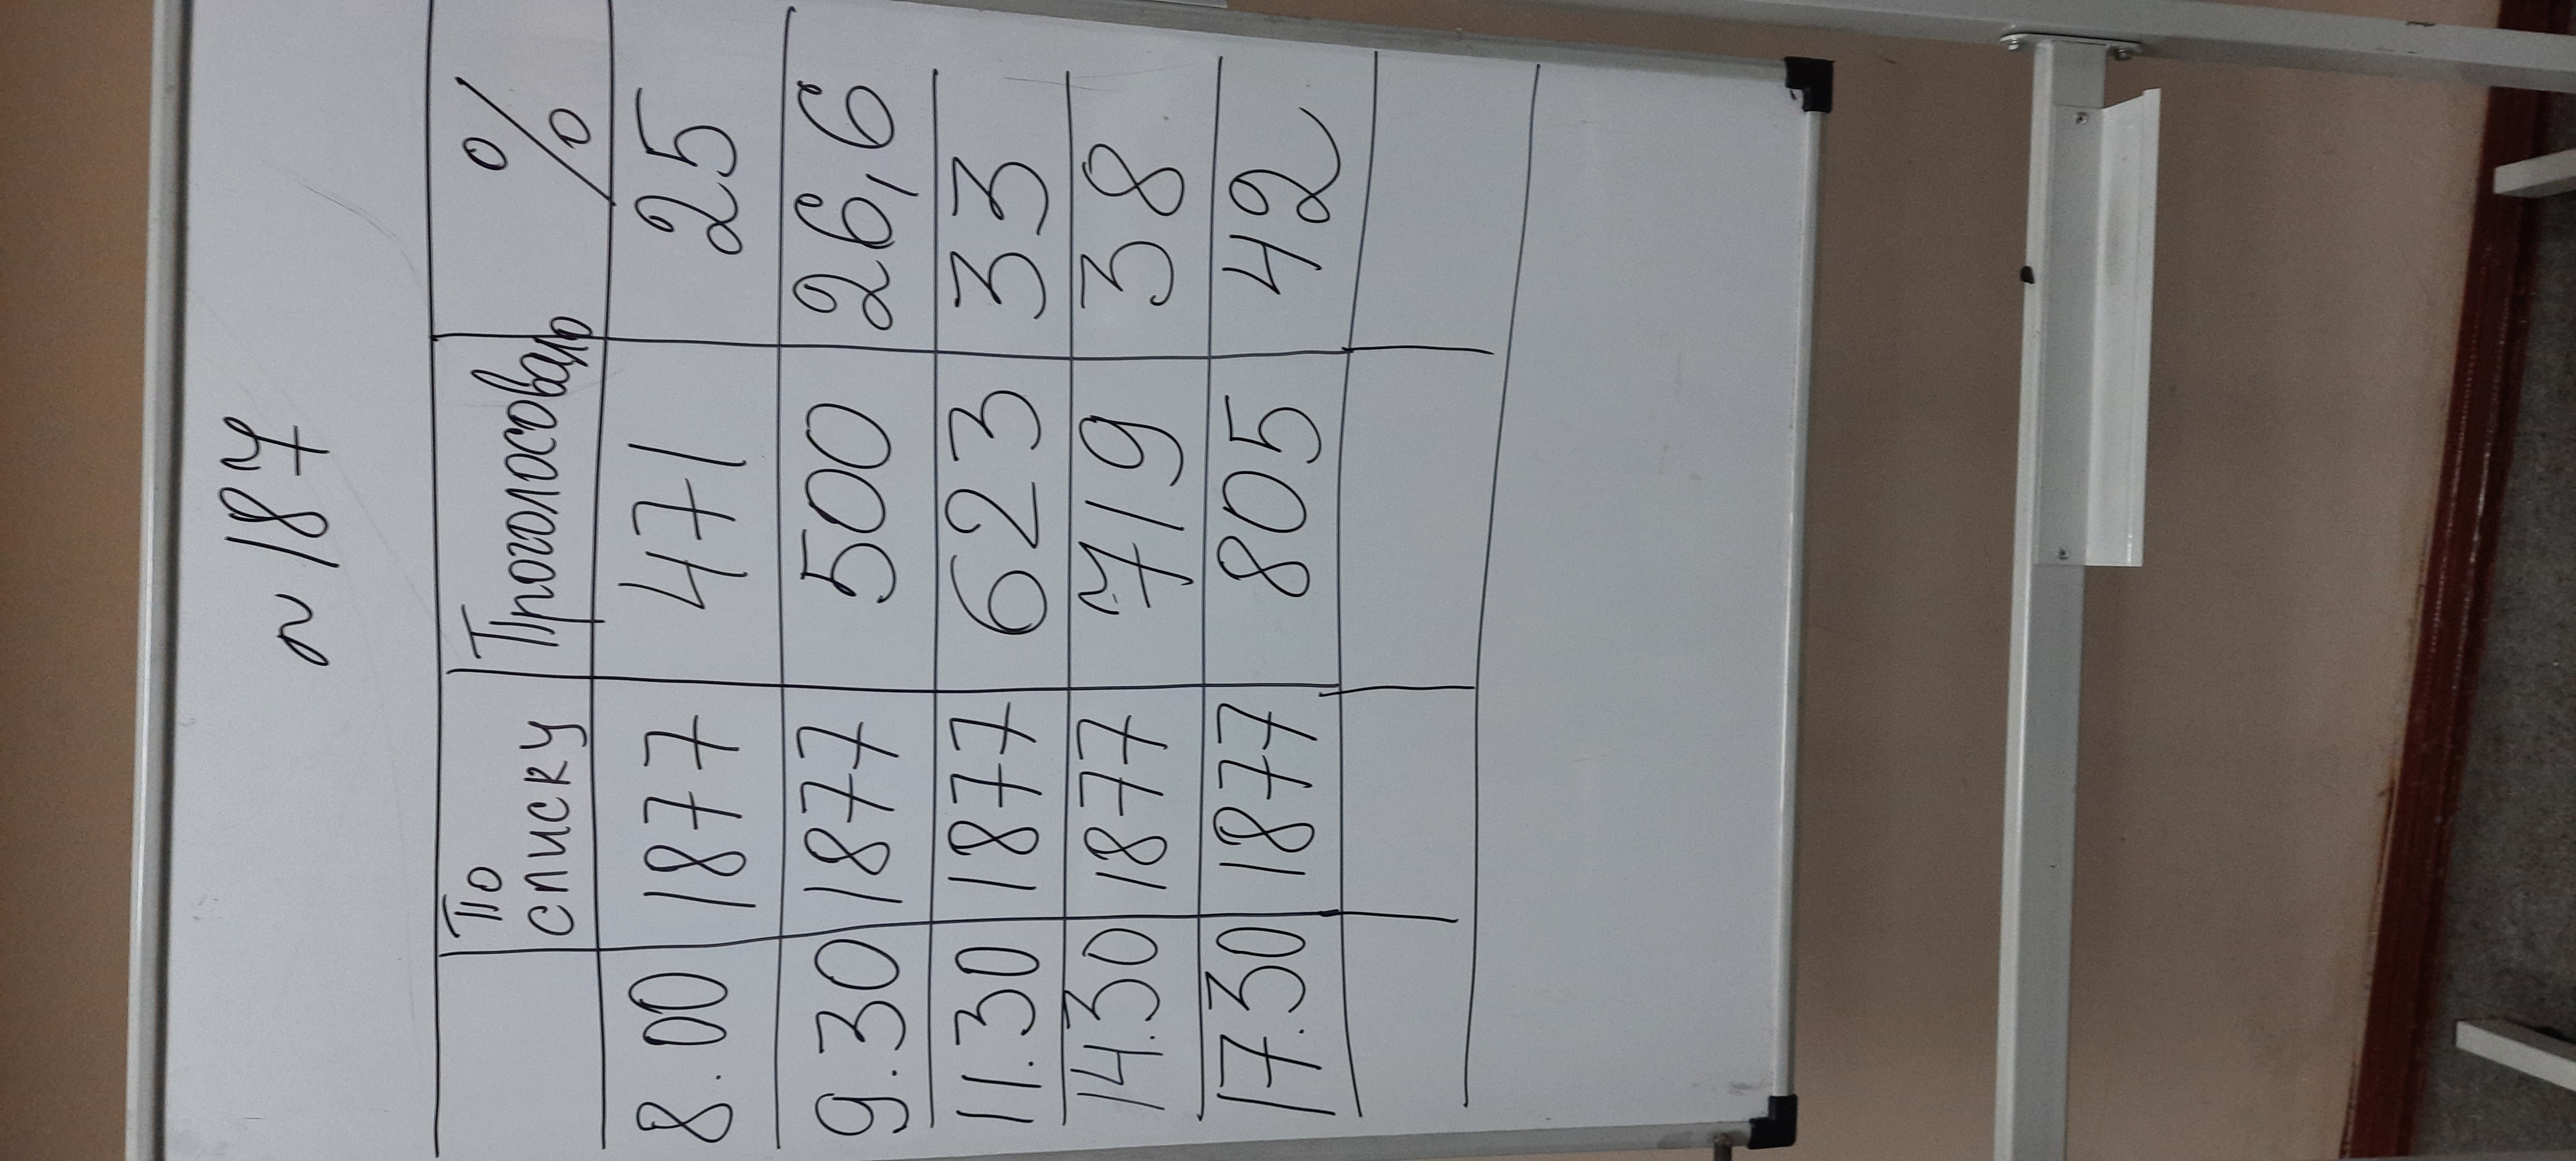 N 187
По списку Проголосовало %
8.00 1877 471 25
9.30 1877 500 26,6
11.30 1877 623 33
14.30 1877 719 38
17.30 1877 805 42